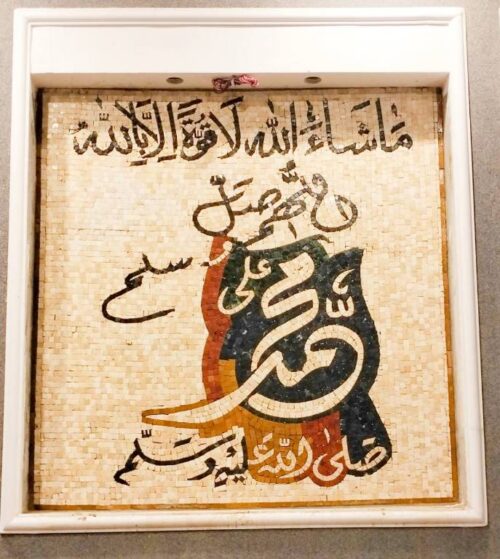 مَا شَاءَ اللّٰه لَا قُوَّةَ إِلَّا بِاللّٰه
اللّٰهم صَلِّ
وسلم على
محمد
صَلَى اللّٰه عَلَيْهِ وَسَلَّم